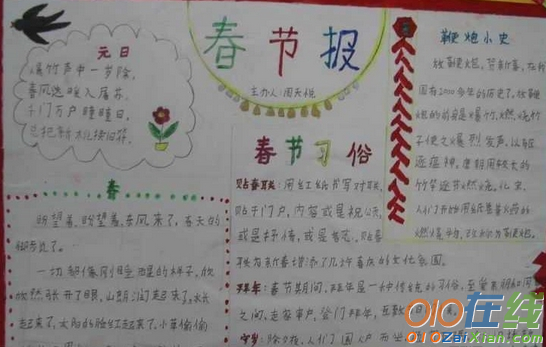 春节报
主办人:周天悦
元日
爆竹声中一岁除,
春风送暖入屠苏。
千门万户曈曈日,
总把新桃换旧符。
春
盼望着,盼望着,东风来了,春天的
脚步近了。
一切都像刚睡醒的样子,欣
欣然张开了眼,山朗润起来了,水长
起来了,太阳的脸红起来了。小草偷偷
春节习俗
贴春联:用红纸书写对联,
贴于门户,内容或是祝公天,
或是抒情,或是
联为新春增添了几许喜庆的文化氛围。
拜年:春节期间,拜年是一种传统的习俗,至爱亲朋和
之间,走家串户,登门拜年,互
守岁:除夕夜,人们围火
鞭炮小史
放鞭炮,贺新春,在
国有2000余年的历史了。放鞭
炮的前身是爆竹,燃烧竹
子使之爆烈发声,以驱
逐瘟神。唐朝用较长的
竹竿逐节燃烧。北宋,
人们开始用纸卷着火药的
燃烧物,改称为鞭炮。
010在线
010ZaiXian.com